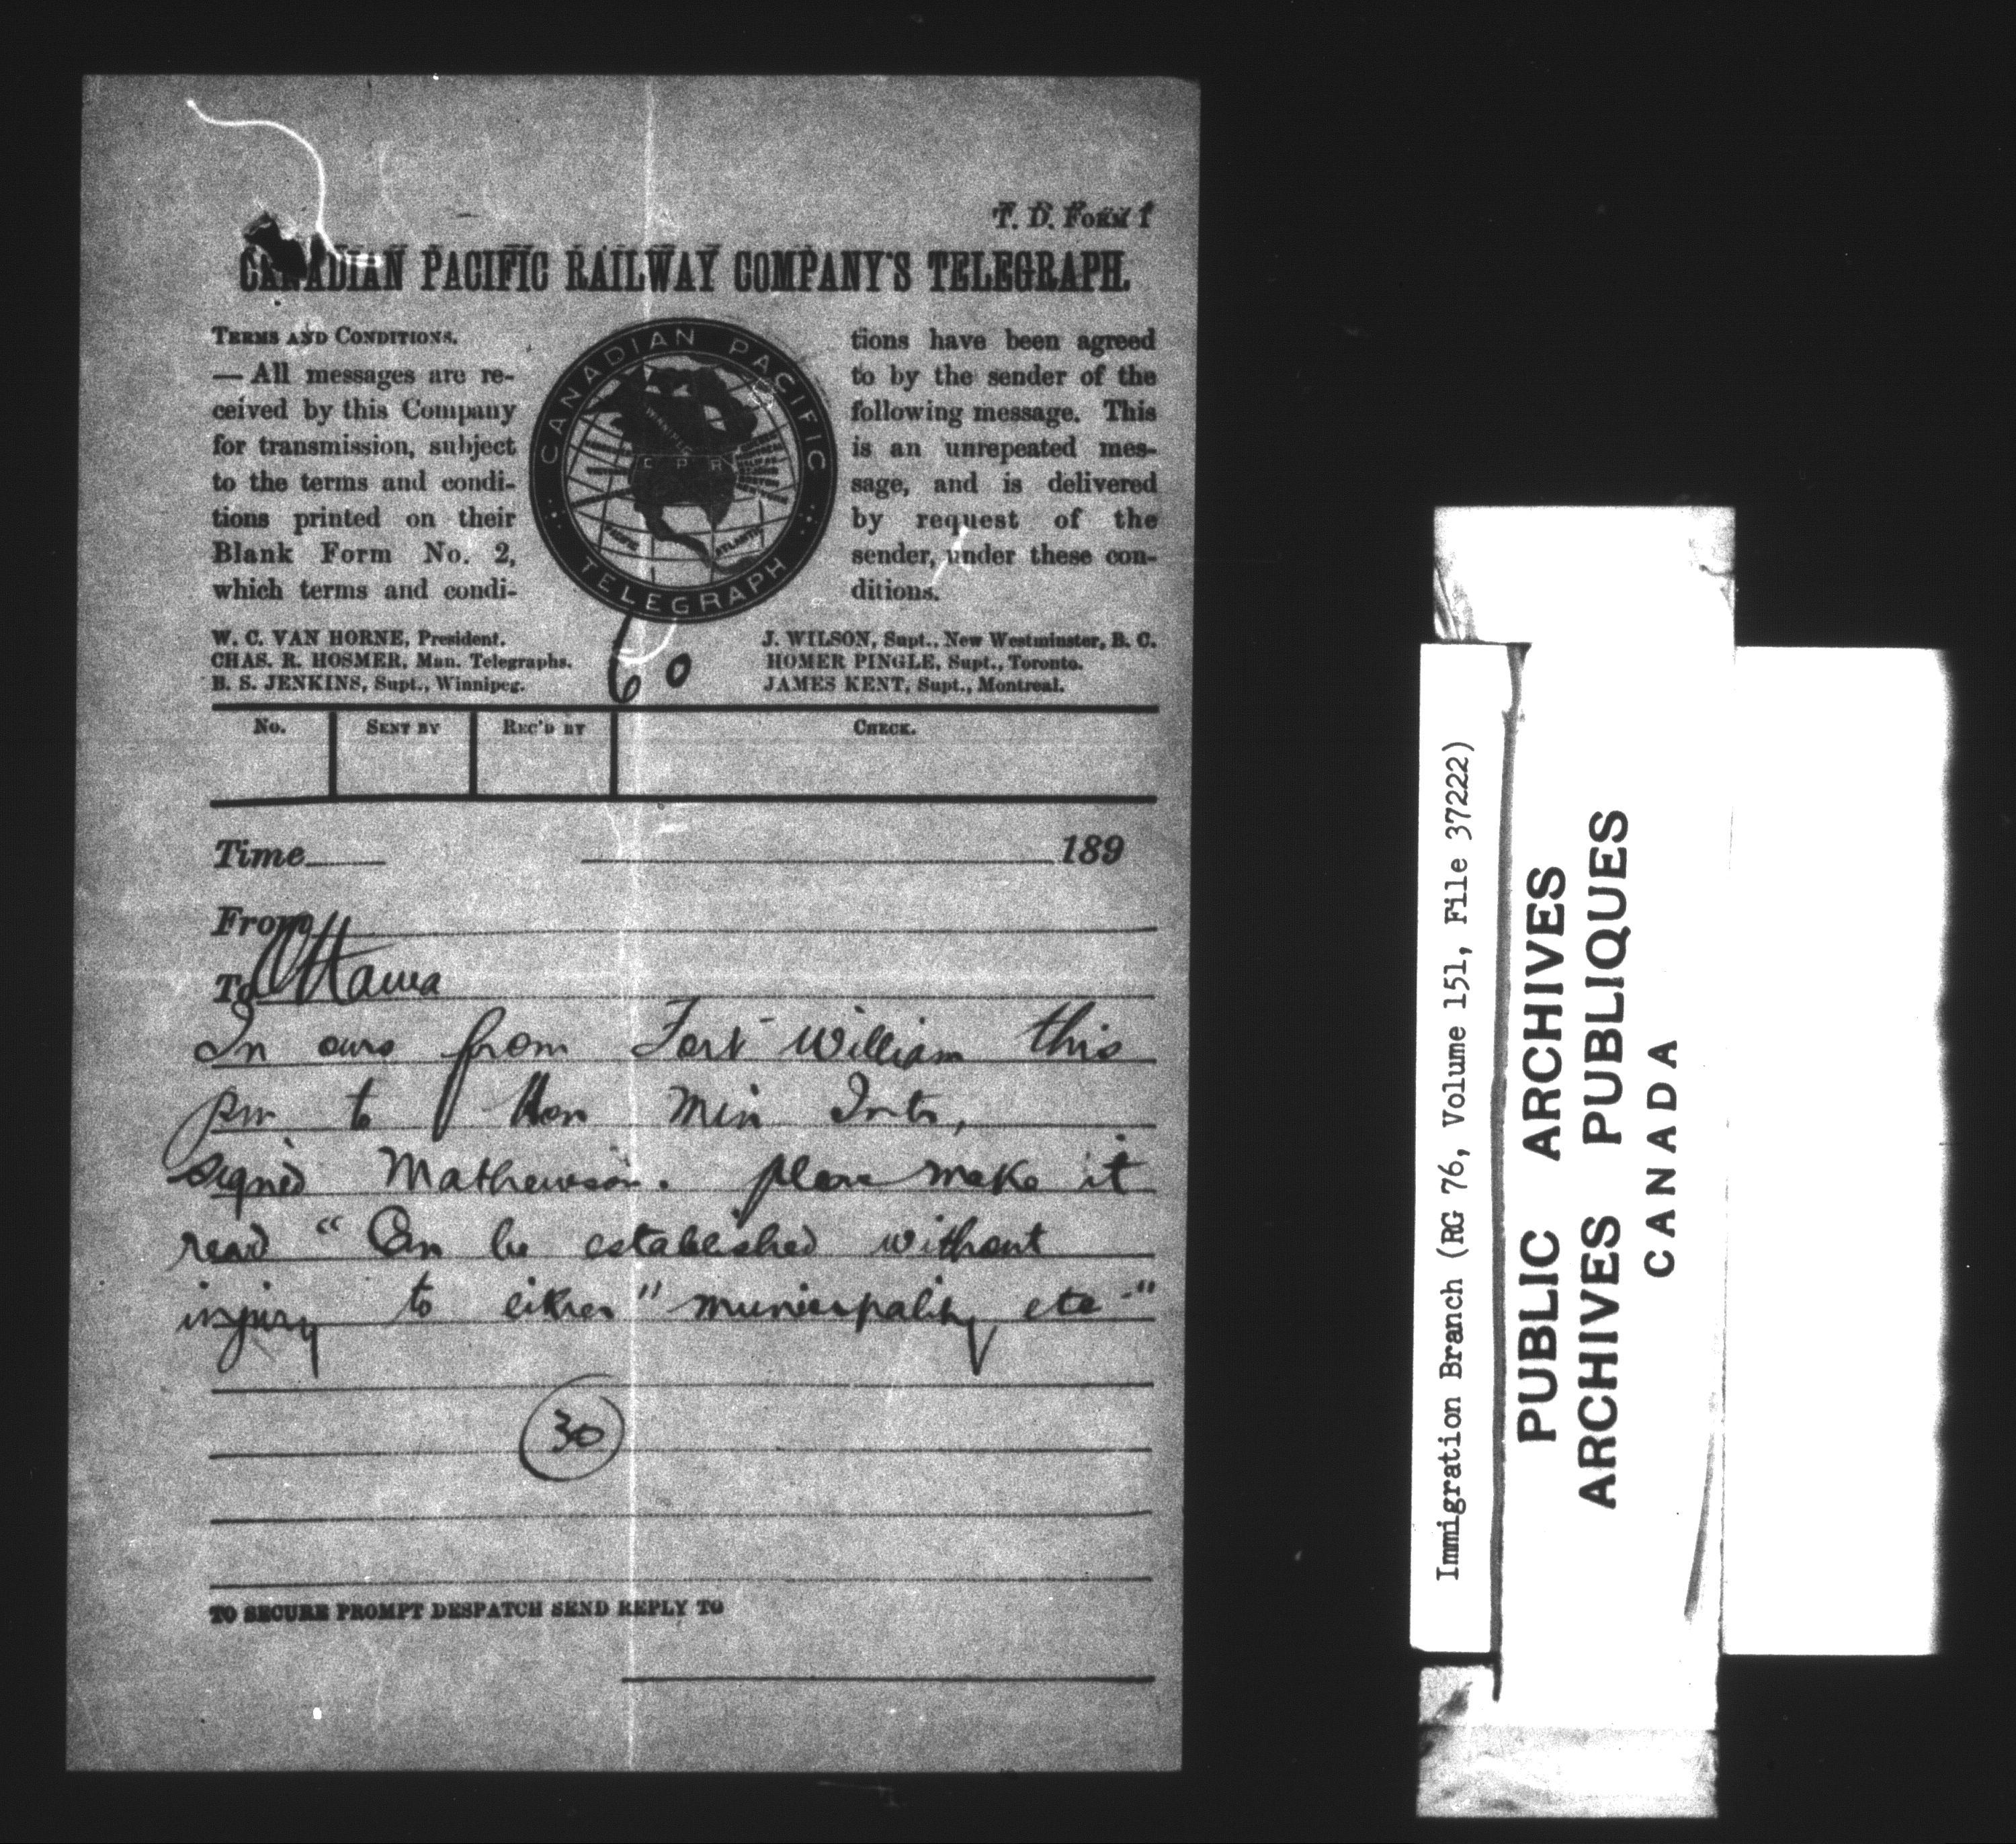 T. D. FORM 1
CANADIAN PACIFIC RAILWAY COMPANY'S TELEGRAPH.
TERMS AND CONDITIONS.
— All messages are re-
ceived by this Company
for transmission, subject
to the terms and condi-
tions printed on their
Blank Form No. 2,
which terms and condi-
CANADIAN PACIFIC
TELEGRAPH
WINNIPEG
C P R
PACIFIC
ATLANTIC
tions have been agreed
to by the sender of the
following message. This
is an unrepeated mes-
sage, and is delivered
by request of the
sender, under these con-
ditions.
W. C. VAN HORNE, President.
CHAS. R. HOSMER, Man. Telegraphs.
B. S. JENKINS, Supt., Winnipeg.
60
J. WILSON, Supt., New Westminster, B. C.
HOMER PINGLE, Supt., Toronto.
JAMES KENT, Supt., Montreal.
No. SENT BY REC'D BY CHECK.
Time 189
From
To Ottawa
In ours from Fort William this
pm to Hon Min Intr,
signed Mathewson. please make it
read " Can be established without
injury to either " municipality etc "
30
TO SECURE PROMPT DESPATCH SEND REPLY TO
Immigration Branch (RG 76, Volume 151, File 37222)
PUBLIC ARCHIVES
ARCHIVES PUBLIQUES
CANADA